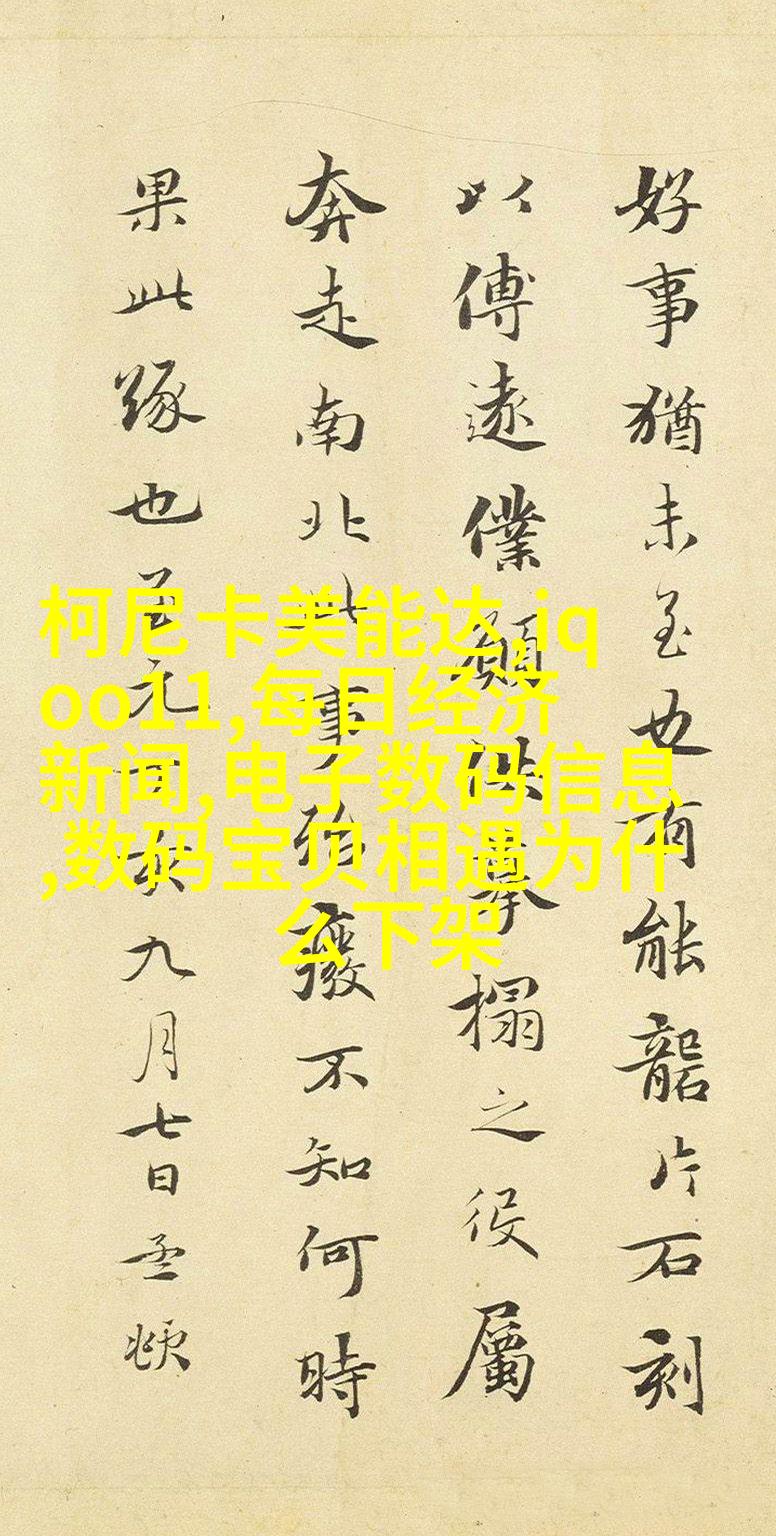 好事猶未至也有能礱片石刻
以傳遠僕願供摹搨之役屬
奔走南北此事殆廢不知何時
果此緣也至元丁亥九月七日孟頫
柯尼卡美能达,iq
oo11,每日经济
新闻,电子数码信息
,数码宝贝相遇为什
么下架